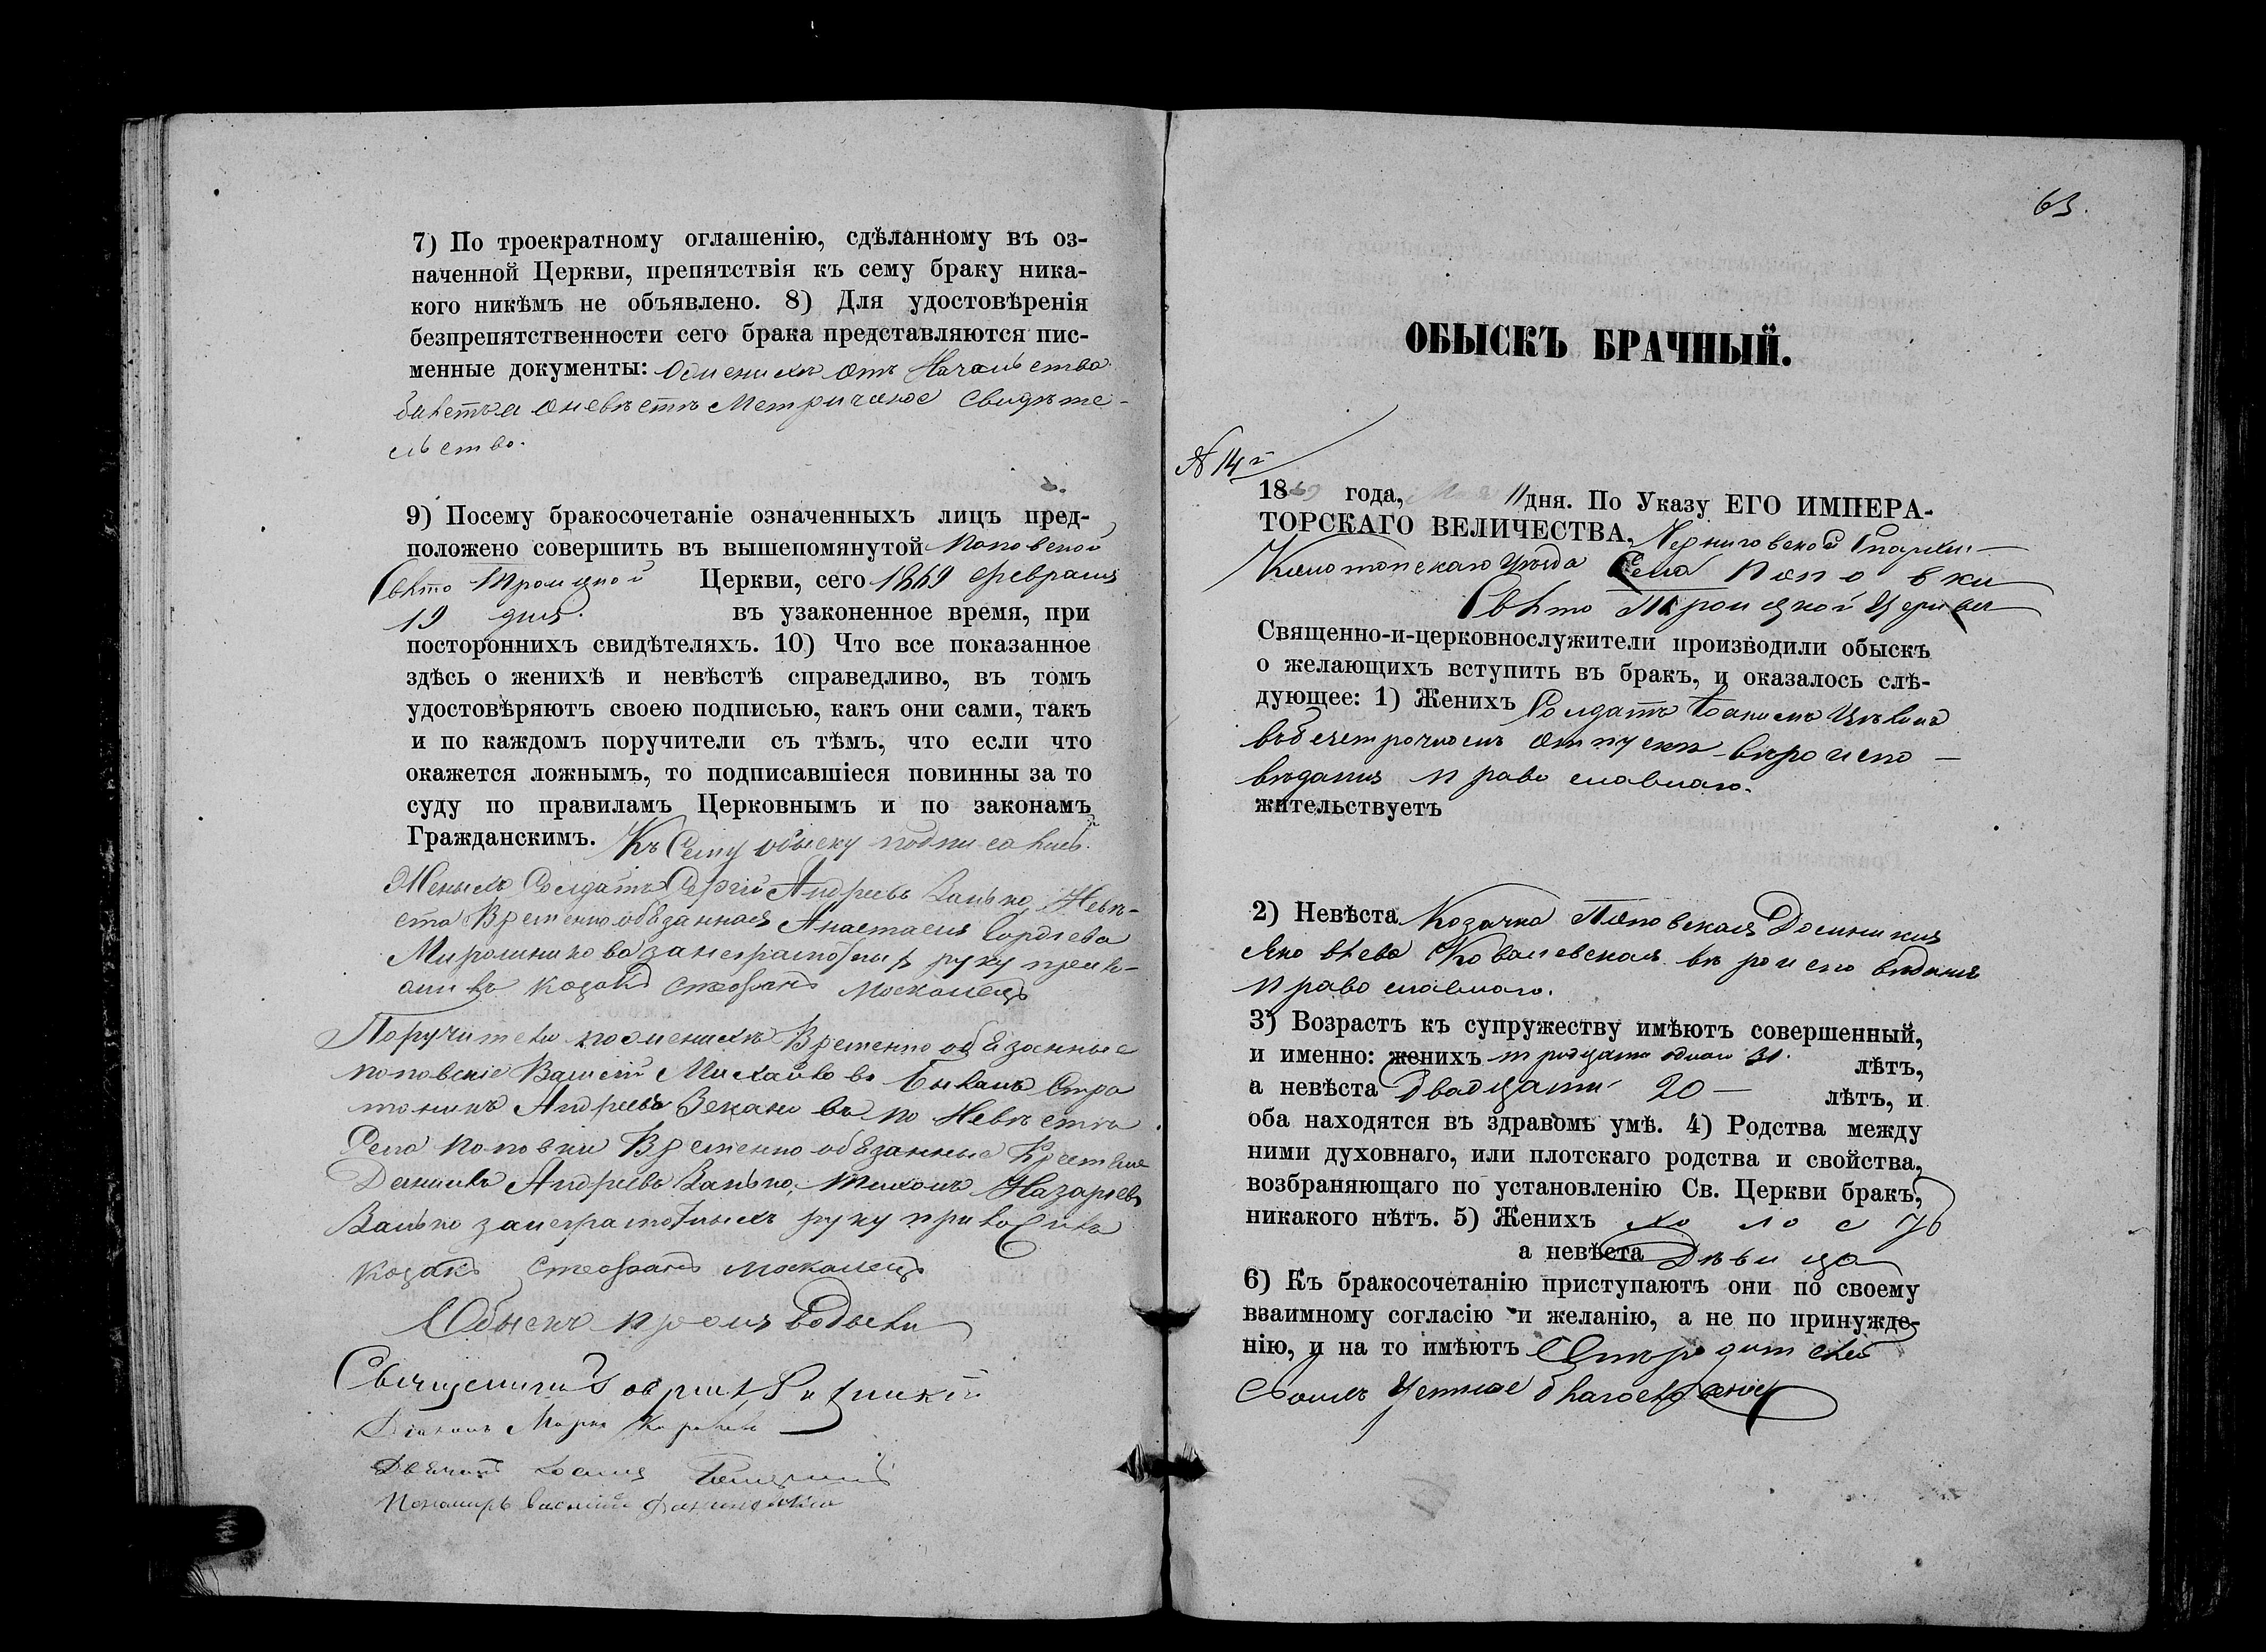 7) По троекратному оглашенію, сдѣланному въ оз-
наченной Церкви, препятствія къ сему браку ника-
кого никѣмъ не объявлено. 8) Для удостовѣренія
безпрепятственности сего брака представляются пис-
менные документы: Оженихѣ отъ Начальства
билетъ а оневѣстѣ Метричное Свидѣте-
льство.
9) Посему бракосочетаніе означенныхъ лицъ пред-
положено совершить въ вышепомянутой Поповской
Свято Троицкой Церкви, сего 1869 февраля
19 дня. въ узаконенное время, при
постороннихъ свидѣтеляхъ. 10) Что все показанное
здѣсь о женихѣ и невѣстѣ справедливо, въ томъ
удостовѣряютъ своею подписью, какъ они сами, такъ
и по каждомъ поручители съ тѣмъ, что если что
окажется ложнымъ, то подписавшіеся повинны за то
суду по правиламъ Церковнымъ и по законамъ
Гражданскимъ. Къ Сему обыску подписались
Женыхъ Солдатъ Сергій Андреевъ Невѣ-
ста Временнообязанная Анастасія
руку прило-
жилъ козакъ Стефанъ Москалецъ
Поручители по женихѣ Временно обязанные
поповскіе Василій Михайловъ
Андреевъ по Невѣстѣ
Села поповки Временно обязанные Крестьяне
Андреевъ Тихонъ Назарьевъ
занеграмотныхъ руку приложилъ
Козакъ Стефанъ Москалецъ
Обыскъ производили
Священникъ
Діаконъ Марко
Дьячокъ
Пономарь Василій
63.
ОБЫСКЪ БРАЧНЫЙ.
№ 14й
1869 года, Мая 11 дня. По Указу ЕГО ИМПЕРА-
ТОРСКАГО ВЕЛИЧЕСТВА, Черниговской Епархіи
Конотопскаго Уѣзда Села Поповки
Свято Троицкой Церкви
Священно-и-церковнослужители производили обыскъ
о желающихъ вступить въ бракъ, и оказалось слѣ-
дующее: 1) Женихъ Солдатъ
въбезсрочномъ отпускѣ вѣроиспо-
вѣданія православнаго.
жительствуетъ
2) Невѣста Козачка Поповская Домникія
Яковлева Ковалевская вѣроисповѣданія
православнаго.
3) Возрастъ къ супружеству имѣютъ совершенный,
и именно: женихъ тридцати одного 31. лѣтъ,
а невѣста Двадцати 20 — лѣтъ, и
оба находятся въ здравомъ умѣ. 4) Родства между
ними духовнаго, или плотскаго родства и свойства,
возбраняющаго по установленію Св. Церкви бракъ,
никакого нѣтъ. 5) Женихъ холостъ
а невѣста Дѣвица
6) Къ бракосочетанію приступаютъ они по своему
взаимному согласію и желанію, а не по принужде-
нію, и на то имѣютъ Отъродителей
Своихъ Устное благословеніе